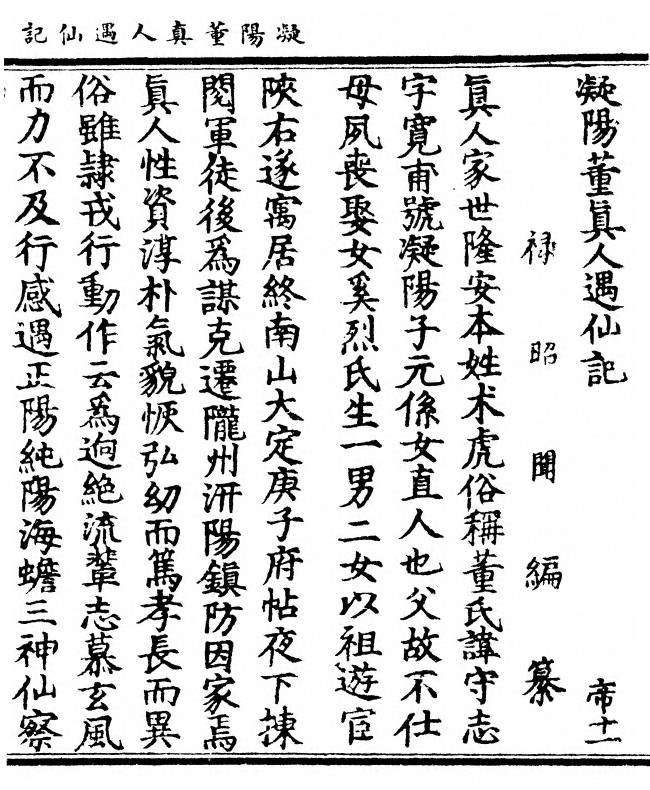 凝陽董真人遇仙記
凝陽董眞人遇仙記　帝十一
祿昭聞編纂
眞人家世隆安本姓术虎俗稱董氏諱守志
字寬甫號凝陽子元係女直人也父故不仕
母夙喪娶女奚烈氏生一男二女以祖遊宦
陝右遂寓居終南山大定庚子府帖夜下揀
閱軍徒後爲謀克遷隴州汧陽鎮防因家焉
眞人性資淳朴氣貌恢弘幼而篤孝長而異
俗雖隷戎行動作云爲逈絶流輩志慕玄風
而力不及行感遇正陽純陽海蟾三神仙察